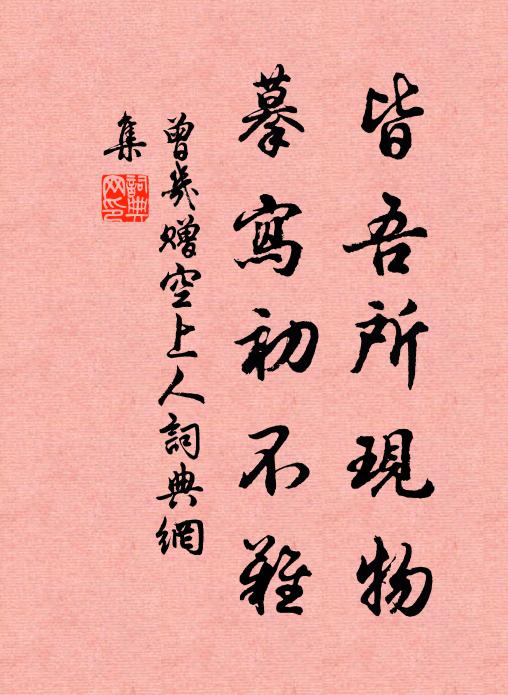 皆吾所現物
摹寫初不難
曾幾贈空上人詞典網
集
詞典
网印